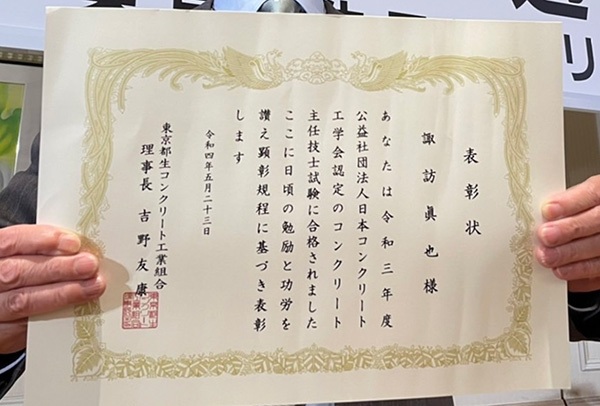 表彰状
諏訪眞也様
あなたは令和三年度
公益社団法人日本コンクリート
工学会認定のコンクリート
主任技士試験に合格されました
ここに日頃の勉励と功労を
讃え顕彰規程に基づき表彰
します
令和四年五月二十三日
東京都生コンクリート工業組合
理事長 吉野友康